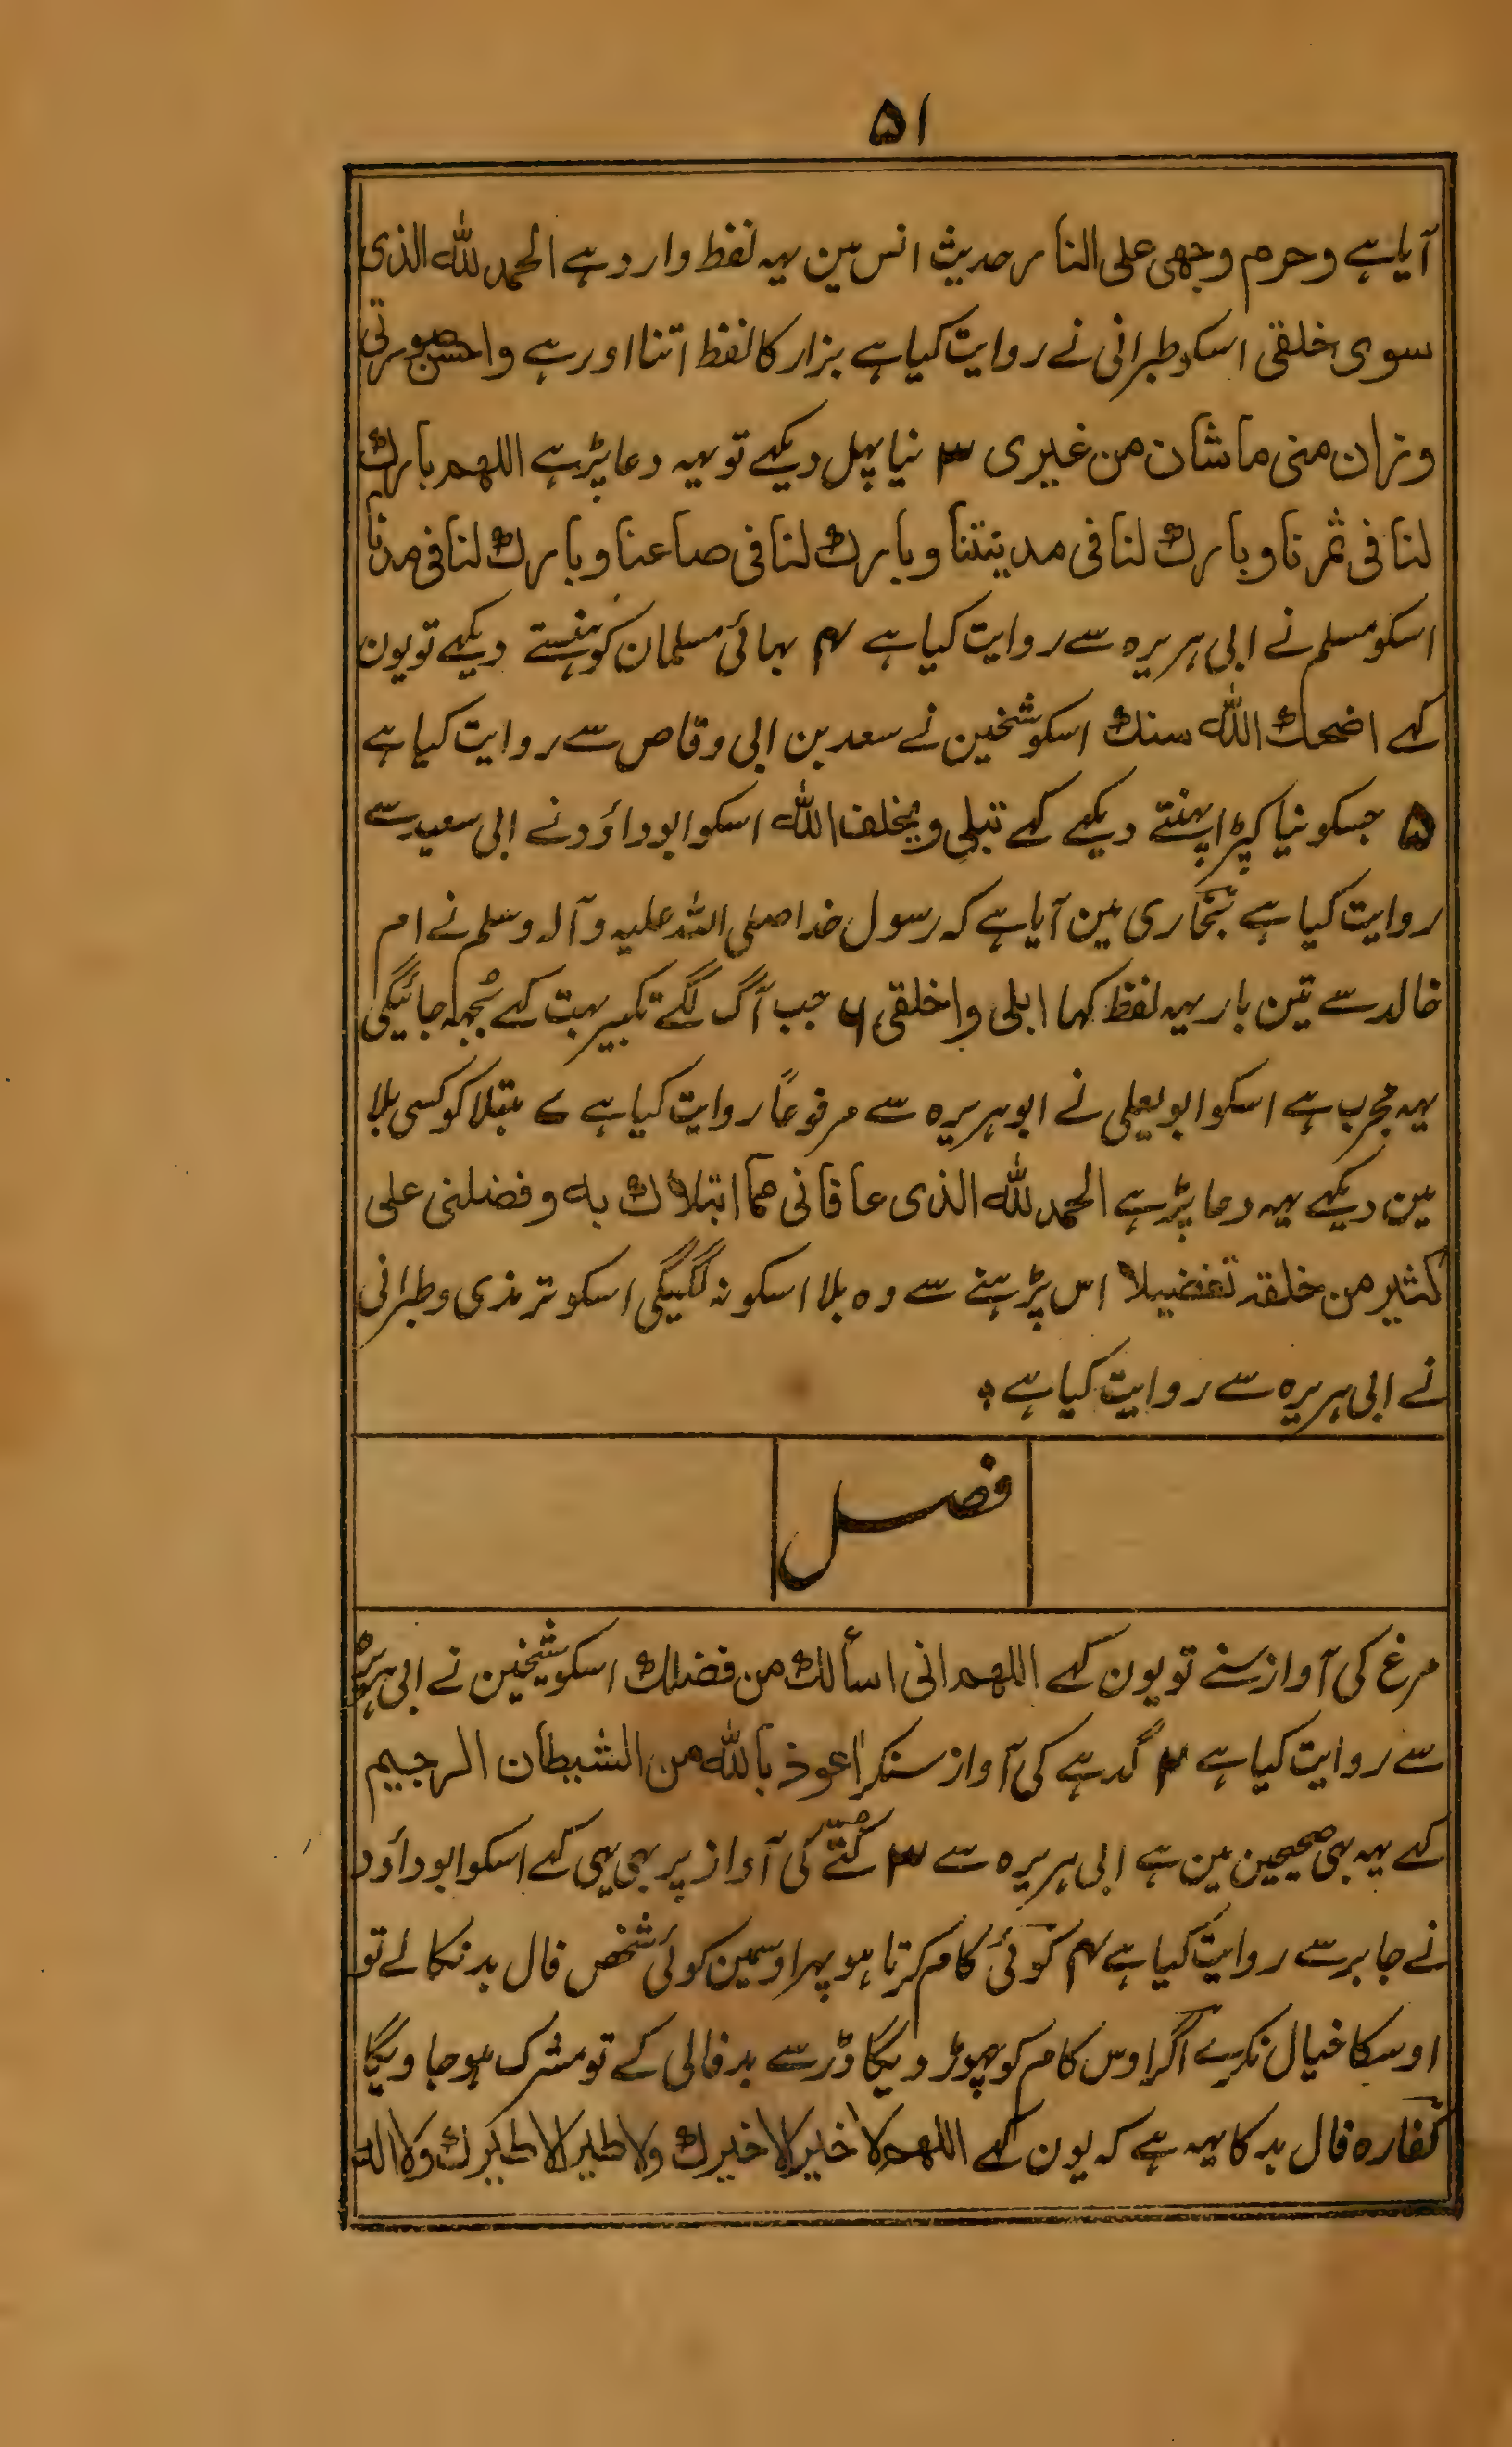 ۵۱
آیا ہے وحرم وجھی علی النار حدیث انس مین یہہ لفظ وارد ہے الحمد للہ الذی
سوی خلقی اسکو طبرانی نے روایت کیا ہے بزار کا لفظ اتنا اور ہے واحسن صورتی
وزان منی ماشان من غیری ۳ نیا پہل دیکہے تو یہہ دعا پڑہے اللھم بارک
لنا فی ثمرنا وبارک لنا فی مدینتنا وبارک لنا فی صاعنا وبارک لنا فی مدنا
اسکو مسلم نے ابی ہریرہ سے روایت کیا ہے ۴ بہائی مسلمان کو ہنستے دیکہے تو یون
کہے اضحک اللہ سنک اسکو شخین نے سعد بن ابی وقاص سے روایت کیا ہے
۵ جسکو نیا کپڑا پہنتے دیکہے کہے تبلی ویخلف اللہ اسکو ابوداؤد نے ابی سعید سے
روایت کیا ہے بخاری مین آیا ہے کہ رسول خدا صلی اللہ علیہ وآلہ وسلم نے ام
خالد سے تین بار یہہ لفظ کہا ابلی واخلقی ۶ جب آگ لگے تکبیر بہت کہے بُجہہ جائیگی
یہہ مجرب ہے اسکو ابویعلی نے ابوہریرہ سے مرفوعاً روایت کیا ہے ۷ مبتلا کو کسی بلا
مین دیکہے یہہ دعا پڑہے الحمد للہ الذی عافانی مما ابتلاک بہ وفضلنی علی
کثیر من خلقہ تفضیلا اس پڑہنے سے وہ بلا اسکو نہ لگیگی اسکو ترمذی وطبرانی
نے ابی ہریرہ سے روایت کیا ہے ؞
فصل
مرغ کی آواز سنے تو یون کہے اللھم انی اسألک من فضلک اسکو شیخین نے ابی ہریرہ
سے روایت کیا ہے ۲ گدہے کی آواز سنکر اعوذ باللہ من الشیطان الرجیم
کہے یہہ بہی صحیحین مین ہے ابی ہریرہ سے ۳ کتّے کی آواز پر بہی یہی کہے اسکو ابوداؤد
نے جابر سے روایت کیا ہے ۴ کوئی کام کرتا ہو پہر اوسمین کوئی شخص فال بد نکالے تو
اوسکا خیال نکرے اگر اوس کام کو چہوڑ دیگا ڈر سے بدفالی کے تو مشرک ہو جاویگا
کفارہ فال بد کا یہہ ہے کہ یون کہے اللھم لا خیر الا خیرک ولا طیر الا طیرک ولا الہ